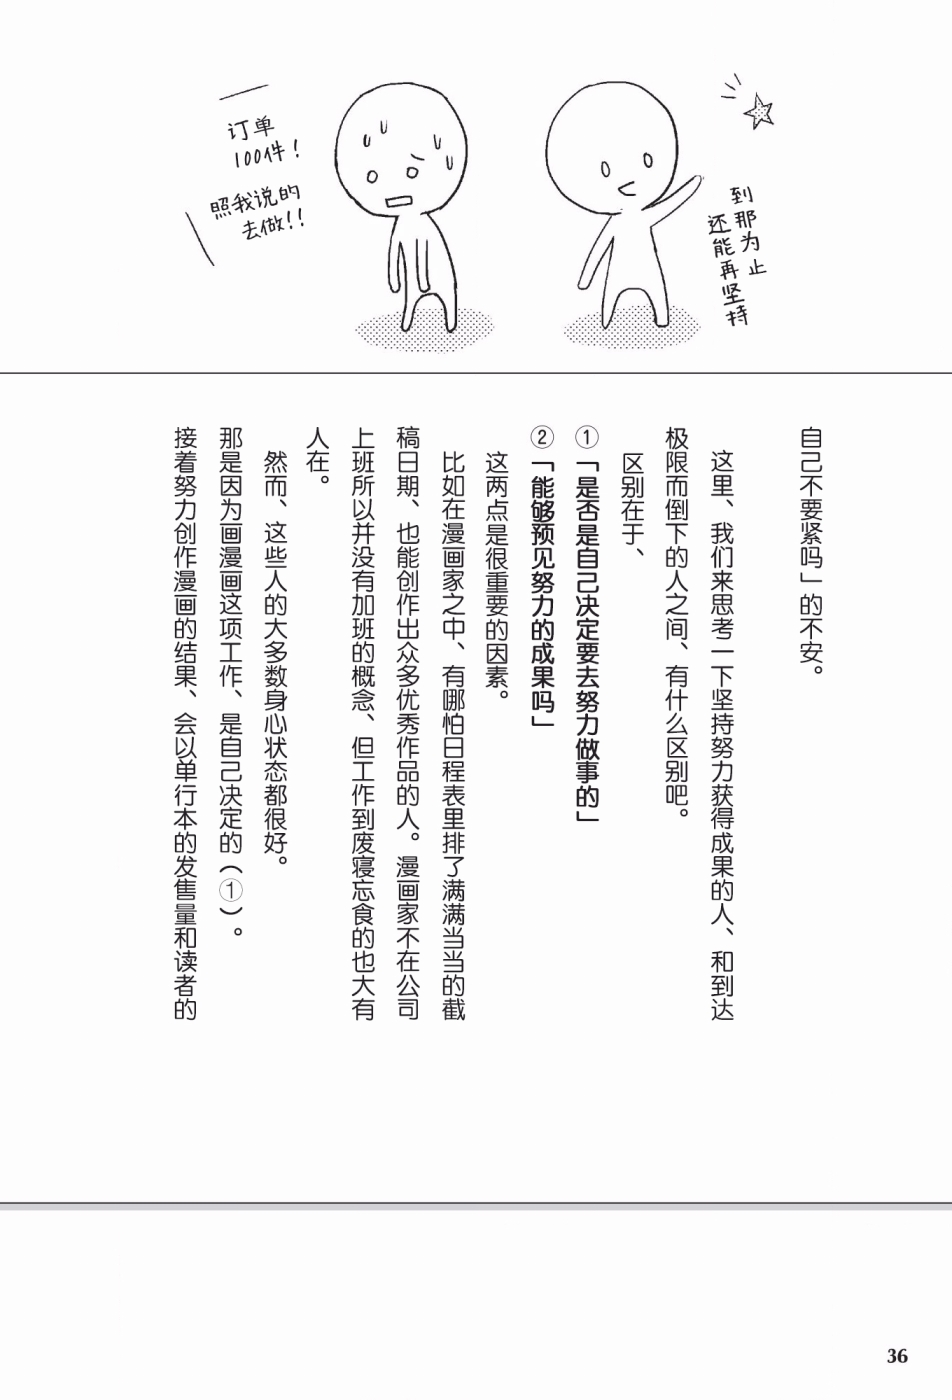 订单
100件！
照我说的
去做！！
到那为止
还能再坚持
自己不要紧吗」的不安。
这里、我们来思考一下坚持努力获得成果的人、和到达
极限而倒下的人之间、有什么区别吧。
区别在于、
①「是否是自己决定要去努力做事的」
②「能够预见努力的成果吗」
这两点是很重要的因素。
比如在漫画家之中、有哪怕日程表里排了满满当当的截
稿日期、也能创作出众多优秀作品的人。漫画家不在公司
上班所以并没有加班的概念、但工作到废寝忘食的也大有
人在。
然而、这些人的大多数身心状态都很好。
那是因为画漫画这项工作、是自己决定的（①）。
接着努力创作漫画的结果、会以单行本的发售量和读者的
36